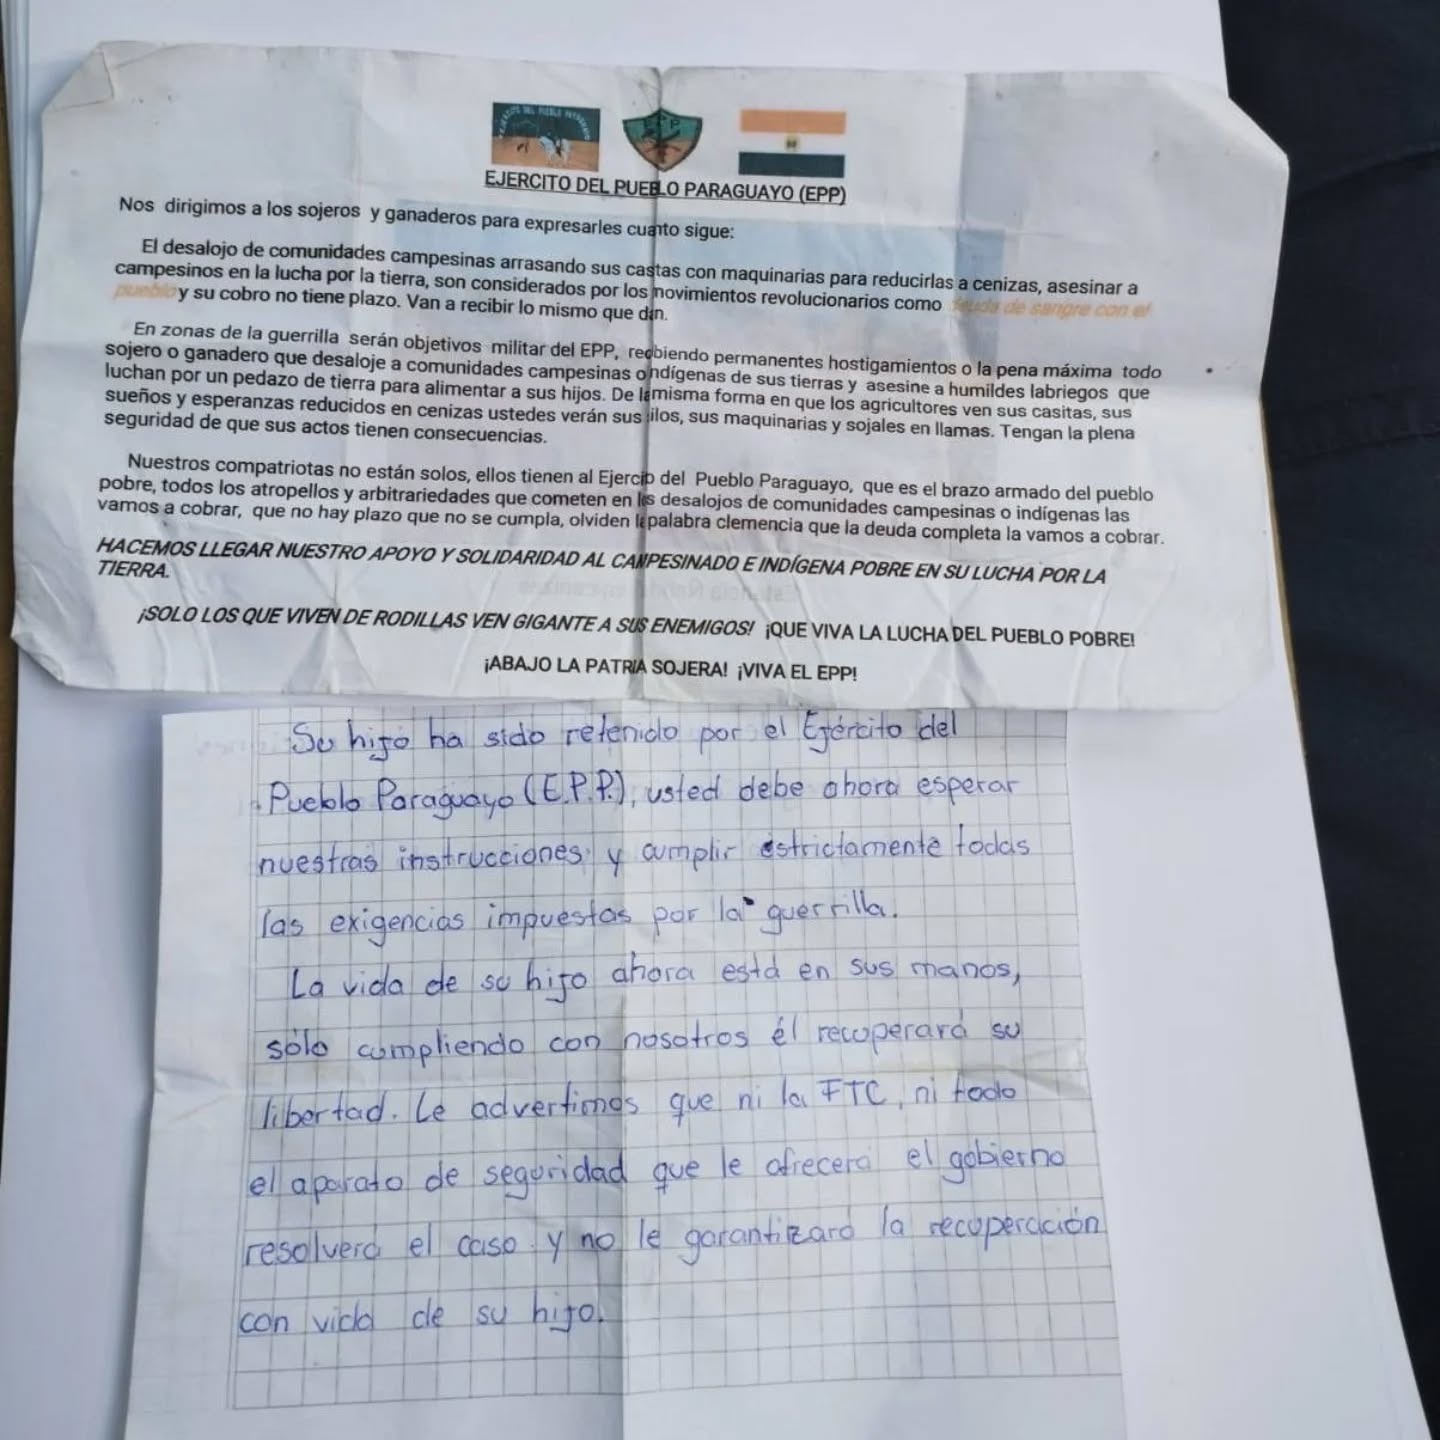 EJERCITO DEL PUEBLO PARAGUAYO
EPP
EJERCITO DEL PUEBLO PARAGUAYO (EPP)
Nos dirigimos a los sojeros y ganaderos para expresarles cuanto sigue:
El desalojo de comunidades campesinas arrasando sus casitas con maquinarias para reducirlas a cenizas, asesinar a
campesinos en la lucha por la tierra, son considerados por los movimientos revolucionarios como deuda de sangre con el
pueblo y su cobro no tiene plazo. Van a recibir lo mismo que dan.
En zonas de la guerrilla serán objetivos militar del EPP, recibiendo permanentes hostigamientos o la pena máxima todo
sojero o ganadero que desaloje a comunidades campesinas o indígenas de sus tierras y asesine a humildes labriegos que
luchan por un pedazo de tierra para alimentar a sus hijos. De la misma forma en que los agricultores ven sus casitas, sus
sueños y esperanzas reducidos en cenizas ustedes verán sus silos, sus maquinarias y sojales en llamas. Tengan la plena
seguridad de que sus actos tienen consecuencias.
Nuestros compatriotas no están solos, ellos tienen al Ejercito del Pueblo Paraguayo, que es el brazo armado del pueblo
pobre, todos los atropellos y arbitrariedades que cometen en los desalojos de comunidades campesinas o indígenas las
vamos a cobrar, que no hay plazo que no se cumpla, olviden la palabra clemencia que la deuda completa la vamos a cobrar.
HACEMOS LLEGAR NUESTRO APOYO Y SOLIDARIDAD AL CAMPESINADO E INDÍGENA POBRE EN SU LUCHA POR LA
TIERRA.
¡SOLO LOS QUE VIVEN DE RODILLAS VEN GIGANTE A SUS ENEMIGOS! ¡QUE VIVA LA LUCHA DEL PUEBLO POBRE!
¡ABAJO LA PATRIA SOJERA! ¡VIVA EL EPP!
Su hijo ha sido retenido por el Ejército del
Pueblo Paraguayo (E.P.P.), usted debe ahora esperar
nuestras instrucciones y cumplir estrictamente todas
las exigencias impuestas por la guerrilla.
La vida de su hijo ahora está en sus manos,
sólo cumpliendo con nosotros él recuperará su
libertad. Le advertimos que ni la FTC, ni todo
el aparato de seguridad que le ofrecerá el gobierno
resolverá el caso y no le garantizará la recuperación
con vida de su hijo.